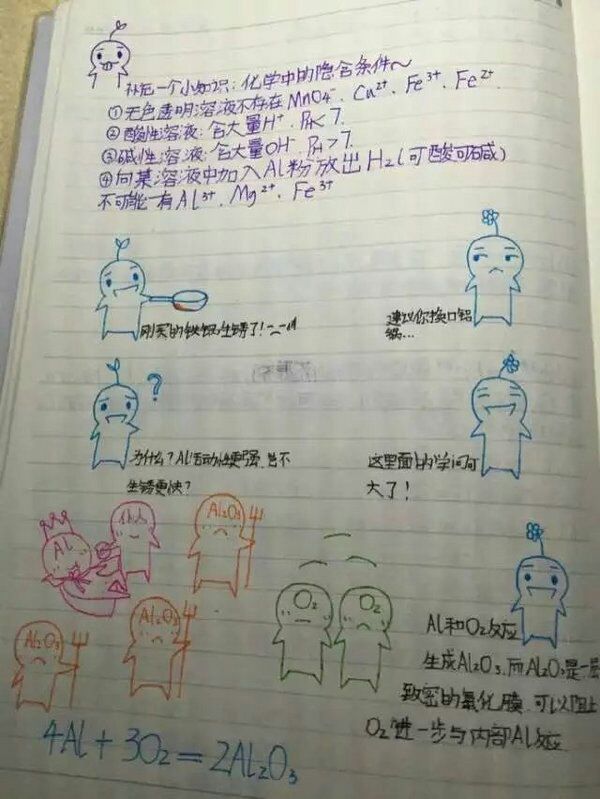 补充一个小知识:化学中的隐含条件~
①无色透明溶液不存在MnO₄⁻、Cu²⁺、Fe³⁺、Fe²⁺.
②酸性溶液:含大量H⁺、PH<7.
③碱性溶液:含大量OH⁻、PH>7.
④向某溶液中加入Al粉放出H₂(可酸可碱)
不可能有Al³⁺、Mg²⁺、Fe³⁺
刚买的铁锅生锈了!
建议你换口铝
锅...
?
为什么?Al活动性更强,岂不
生锈更快?
这里面的学问可
大了!
Al
Al₂O₃
Al₂O₃
Al₂O₃
O₂
O₂
Al和O₂反应
生成Al₂O₃,而Al₂O₃是一层
致密的氧化膜,可以阻止
O₂进一步与内部Al反应
4Al+3O₂=2Al₂O₃